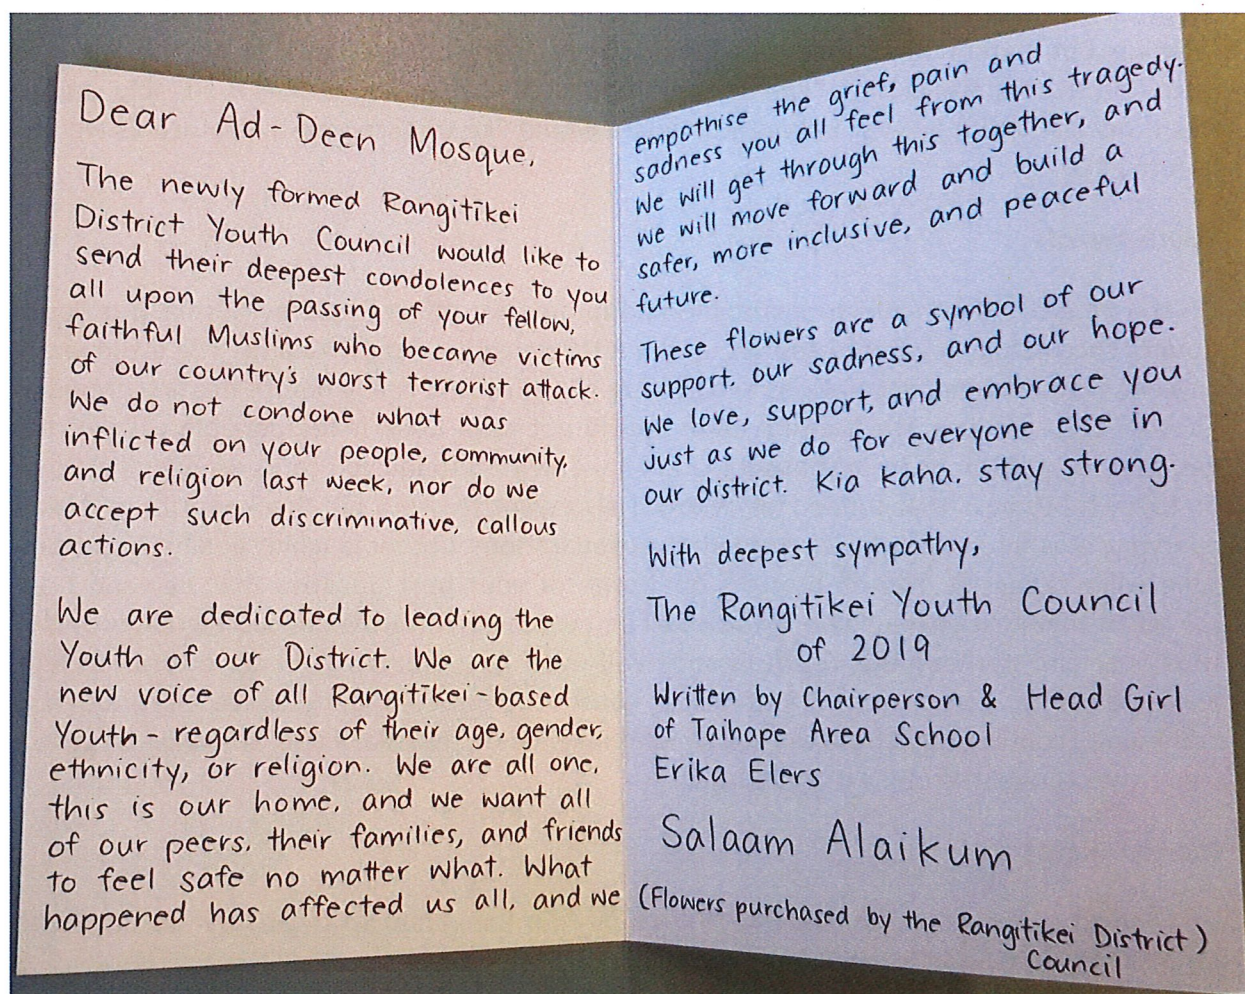 Dear Ad-Deen Mosque,
The newly formed Rangitīkei
District Youth Council would like to
send their deepest condolences to you
all upon the passing of your fellow,
faithful Muslims who became victims
of our country's worst terrorist attack.
We do not condone what was
inflicted on your people, community,
and religion last week, nor do we
accept such discriminative, callous
actions.
We are dedicated to leading the
Youth of our District. We are the
new voice of all Rangitīkei-based
Youth - regardless of their age, gender,
ethnicity, or religion. We are all one,
this is our home, and we want all
of our peers, their families, and friends
to feel safe no matter what. What
happened has affected us all, and we
empathise the grief, pain and
sadness you all feel from this tragedy.
We will get through this together, and
we will move forward and build a
safer, more inclusive, and peaceful
future.
These flowers are a symbol of our
support, our sadness, and our hope.
We love, support, and embrace you
just as we do for everyone else in
our district. Kia kaha, stay strong.
With deepest sympathy,
The Rangitīkei Youth Council
of 2019
Written by Chairperson & Head Girl
of Taihape Area School
Erika Elers
Salaam Alaikum
(Flowers purchased by the Rangitīkei District)
Council